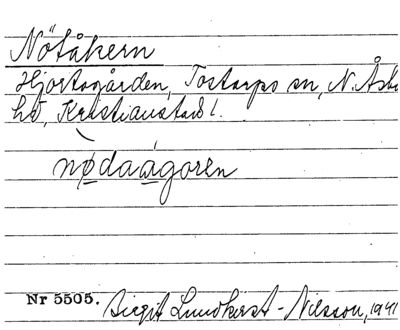 Nötåkern
Hjortsgården, Tostarps sn, N. Åsbo
hd, Kristianstads l.
nødaågoren
Nr 5505. Birgit Lundkvist-Nilsson, 1941